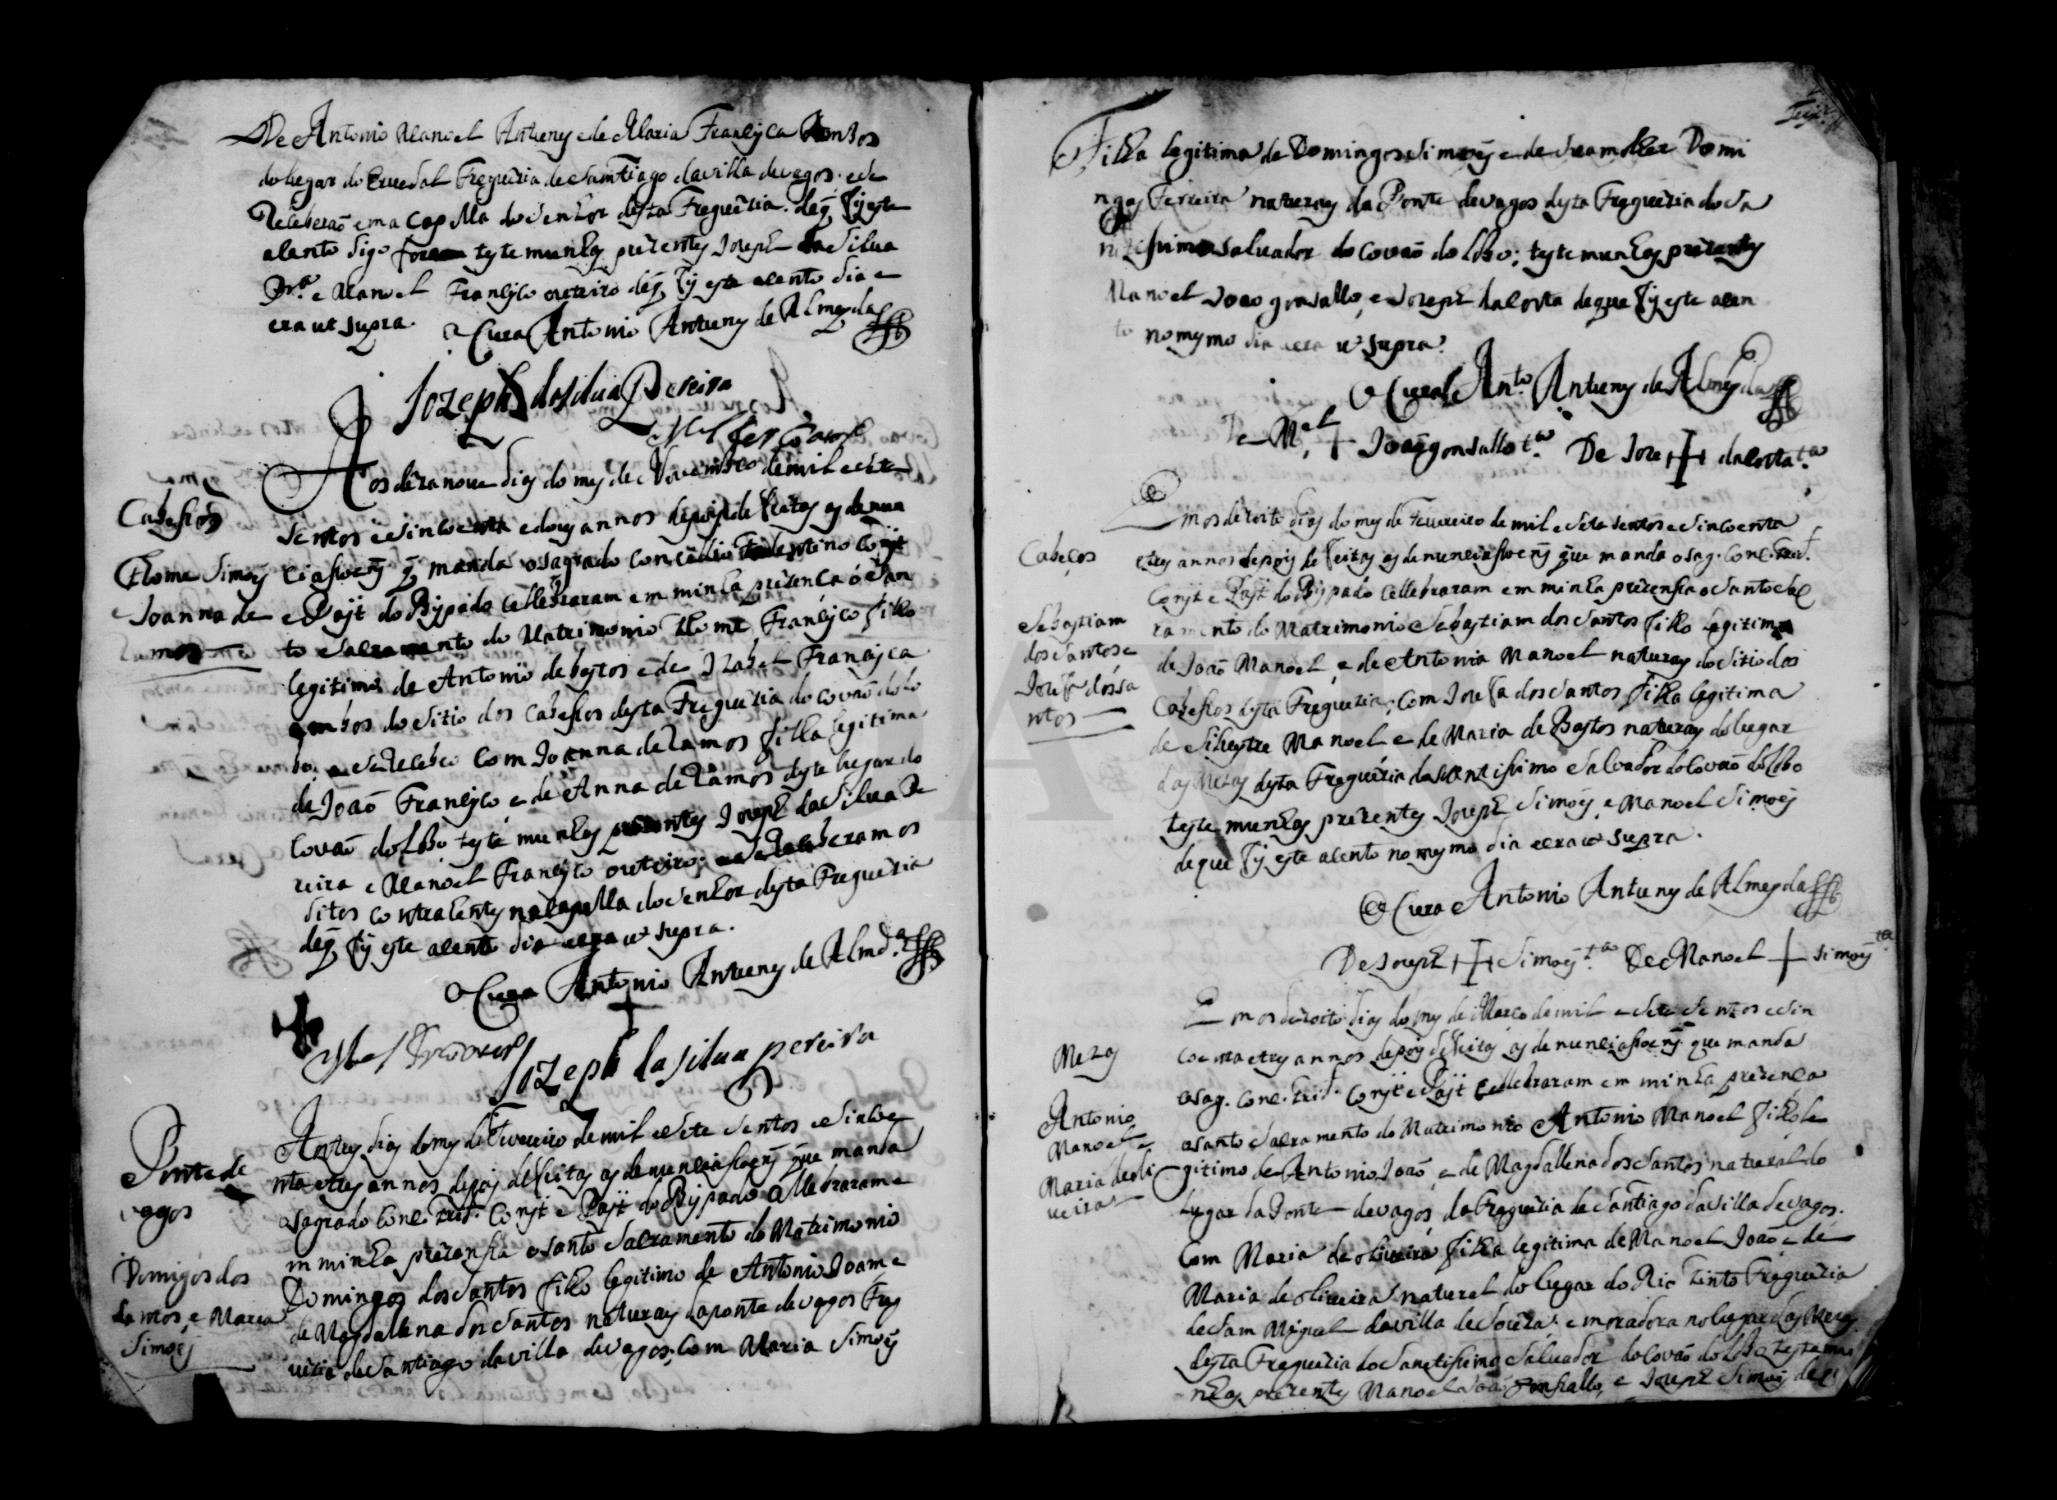 De Antonio Manoel Antunes e de Maria Francisca Ambos
do lugar do Freguezia de Santiago da villa de vagos e de
Receberaõ em a Capella do Senhor desta Freguezia. de q̃ fis este
asento digo foram testemunhas prezentes Joseph da Silva
Pr.ª e Manoel Francisco outeiro de q̃ fis este asento dia e
era ut supra.
o Cura Antonio Antunes de Almeyda
Jozeph da silua Pereira
Aos dezanove dias do mes de Novembro de mil e sete
Cabesos
sentos e sincoenta e dous annos depois de feitas as denun
Thome Simois
ciasoens q̃ manda o sagrado concilio Tridentino Const
e Joanna de
e Const do Bispado cellebraram em minha prezença o San
to Sacramento do Matrimonio Thome Francisco filho
legitimo de Antonio de bastos e de Izabel Francisca
ambos do sitio dos Cabesos desta Freguezia do covaõ do lo
bo, e Recebeo com Joanna de Ramos filha legitima
de Joaõ Francisco e de Anna de Ramos deste lugar do
Covaõ do Lobo testemunhas prezentes Joseph da Silva Pe
reira e Manoel Francisco outeiro; e Receberam os
ditos contrahentes na Capella do Senhor desta Freguezia
de q̃ fis este asento dia e era ut supra.
o Cura Antonio Antunes de Almd.ª
Jozeph da silua pereira
Aos tres dias do mes de Fevereiro de mil e sete sentos e sincoe
Ponte de
nta e tres annos depois de feitas as denunciasoens que manda
vagos
o sagrado Conc. Trid. Const e Const do Bispado cellebraram e
m minha prezensa o santo Sacramento do Matrimonio
Domigos dos
Domingos dos Santos filho legitimo de Antonio Joam e
santos, e Maria
de Magdallena dos Santos naturais da ponte de vagos Freg
Simois
uezia de Santiago da villa de vagos, Com Maria Simois
Filha legitima de Domingos Simois e de sua molher Domi
ngas Ferreira naturais da Ponte de vagos desta Freguezia do Sa
ntissimo Salvador do Covaõ do Lobo; testemunhas prezentes
Manoel Joao gonsallo, e Joseph da Costa de que fis este asen
to no mesmo dia e era ut supra.
o Cura Ant.º Antunes de Almeyda
De M.el + Joaõ gonsallo t.ª De Jose + da Costa t.ª
Em os dezoito dias do mes de Fevereiro de mil e sete sentos e sincoenta
Cabeços
e tres annos depois de feitas as denunciasoens que manda o sag. Conc. Trid.
Const e Const do Bispado cellebraram em minha prezensa o Santo Sac
Sebastiam
ramento do Matrimonio Sebastiam dos Santos filho legitimo
dos Santos e
de Joaõ Manoel, e de Antonia Manoel naturais do Sitio dos
Josefa dos sa
Cabesos desta Freguezia, com Josefa dos Santos filha legitima
ntos
de Silvestre Manoel e de Maria de Bastos naturais do lugar
das Mezas desta Freguezia do Santissimo Salvador do Covaõ do Lobo
testemunhas prezentes Joseph Simois, e Manoel Simois
de que fis este asento no mesmo dia e era ut supra.
o Cura Antonio Antunes de Almeyda
De Joseph + Simois t.ª De Manoel + Simois t.ª
Em os dezoito dias do mes de Março de mil e sete sentos e sin
Mezas
coenta e tres annos depois de feitas as denunciasoens que manda
o sag. Conc. Trid. Const e Const Cellebraram em minha prezença
Antonio
o santo Sacramento do Matrimonio Antonio Manoel filho le
Manoel e
gitimo de Antonio Joaõ, e de Magdallena dos Santos natural do
Maria de oli
lugar da Ponte de vagos, da Freguezia de Santiago da villa de vagos.
veira
Com Maria de oliveira filha legitima de Manoel Joaõ e de
Maria de oliveira natural do lugar do Rio Tinto Freguezia
de Sam Miguel da villa de Souza, e moradora no lugar das Mezas
desta Freguezia do Sanctissimo Salvador do Covaõ do Lobo testemu
nhas prezentes Manoel Joaõ Gonsallo, e Joseph Simois de q̃